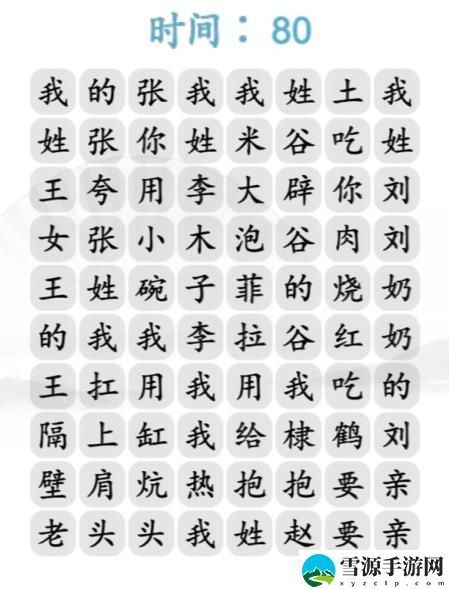 时间：80
我的张我我姓土我
姓张你姓米谷吃姓
王夸用李大辟你刘
女张小木泡谷肉刘
王姓碗子菲的烧奶
的我我李拉谷红奶
王扛用我用我吃的
隔上缸我给棣鹤刘
壁肩炕热抱抱要亲
老头头我姓赵要亲
雪源手游网
xyzclp.com